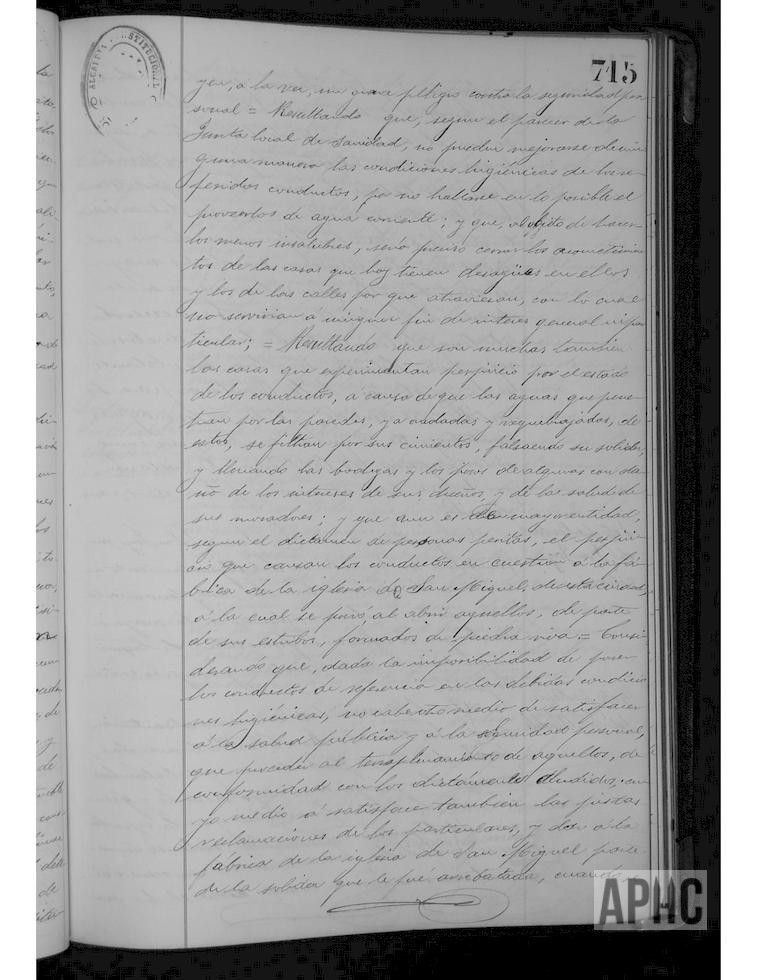 ALCALDIA CONSTITUCIONAL
715
yen, á la vez, un grave peligro contra la seguridad per
sonal = Resultando que, segun el parecer de la
Junta local de Sanidad, no pueden mejorarse de nin
guna manera las condiciones higiénicas de los re
feridos conductos, por no hallarse en lo posible el
proveerlos de agua corriente; y que, al objeto de hacer
los menos insalubres, sería preciso cerrar los acometimien
tos de las casas que hoy tienen desagües en ellos
y los de las calles por que atraviesan, con lo cual
no servirian a ningun fin de interes general ni par
ticular; = Resultando que son muchas tambien
las casas que experimentan perjuicio por el estado
de los conductos, a causa de que las aguas que pene
tran por las paredes, ya oradadas y requebrajadas, de
estos, se filtran por sus cimientos, falseando su solidez,
y llenando las bodegas y los pozos de algunas con da
ño de los intereses de sus dueños, y de la salud de
sus moradores; y que aun es de mayor entidad,
segun el dictamen de personas peritas, el perjui
cio que causan los conductos en cuestion á la fá
brica de la iglesia de San Miguel, de esta ciudad,
á la cual se privó, al abrir aquellos, de parte
de sus estribos, formados de piedra viva = Consi
derando que, dada la imposibilidad de poner
los conductos de referencia en las debidas condicio
nes higiénicas, no cabe otro medio de satisfacer
á la salud pública y á la seguridad personal,
que proceder al terraplenamiento de aquellos, de
conformidad con los dictámenes aludidos, cu
yo medio á satisface tambien las justas
reclamaciones de los particulares, y dar á la
fábrica de la iglesia de San Miguel parte
de la solidez que le fué arrebatada, cuando
APHC